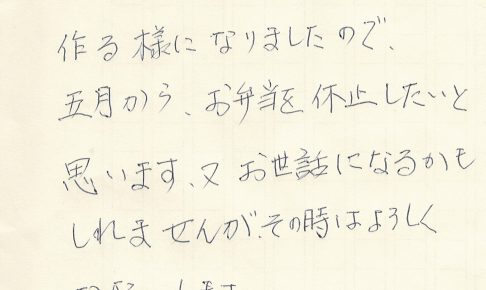 作る様になりましたので、
五月から、お弁当を休止したいと
思います、又お世話になるかも
しれませんが、その時はよろしく